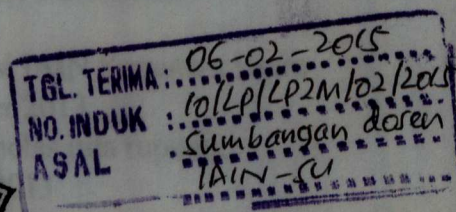 TGL. TERIMA : 06-02-2015
NO. INDUK : 10/LP/LP2M/02/2015
ASAL : Sumbangan dosen
IAIN-SU